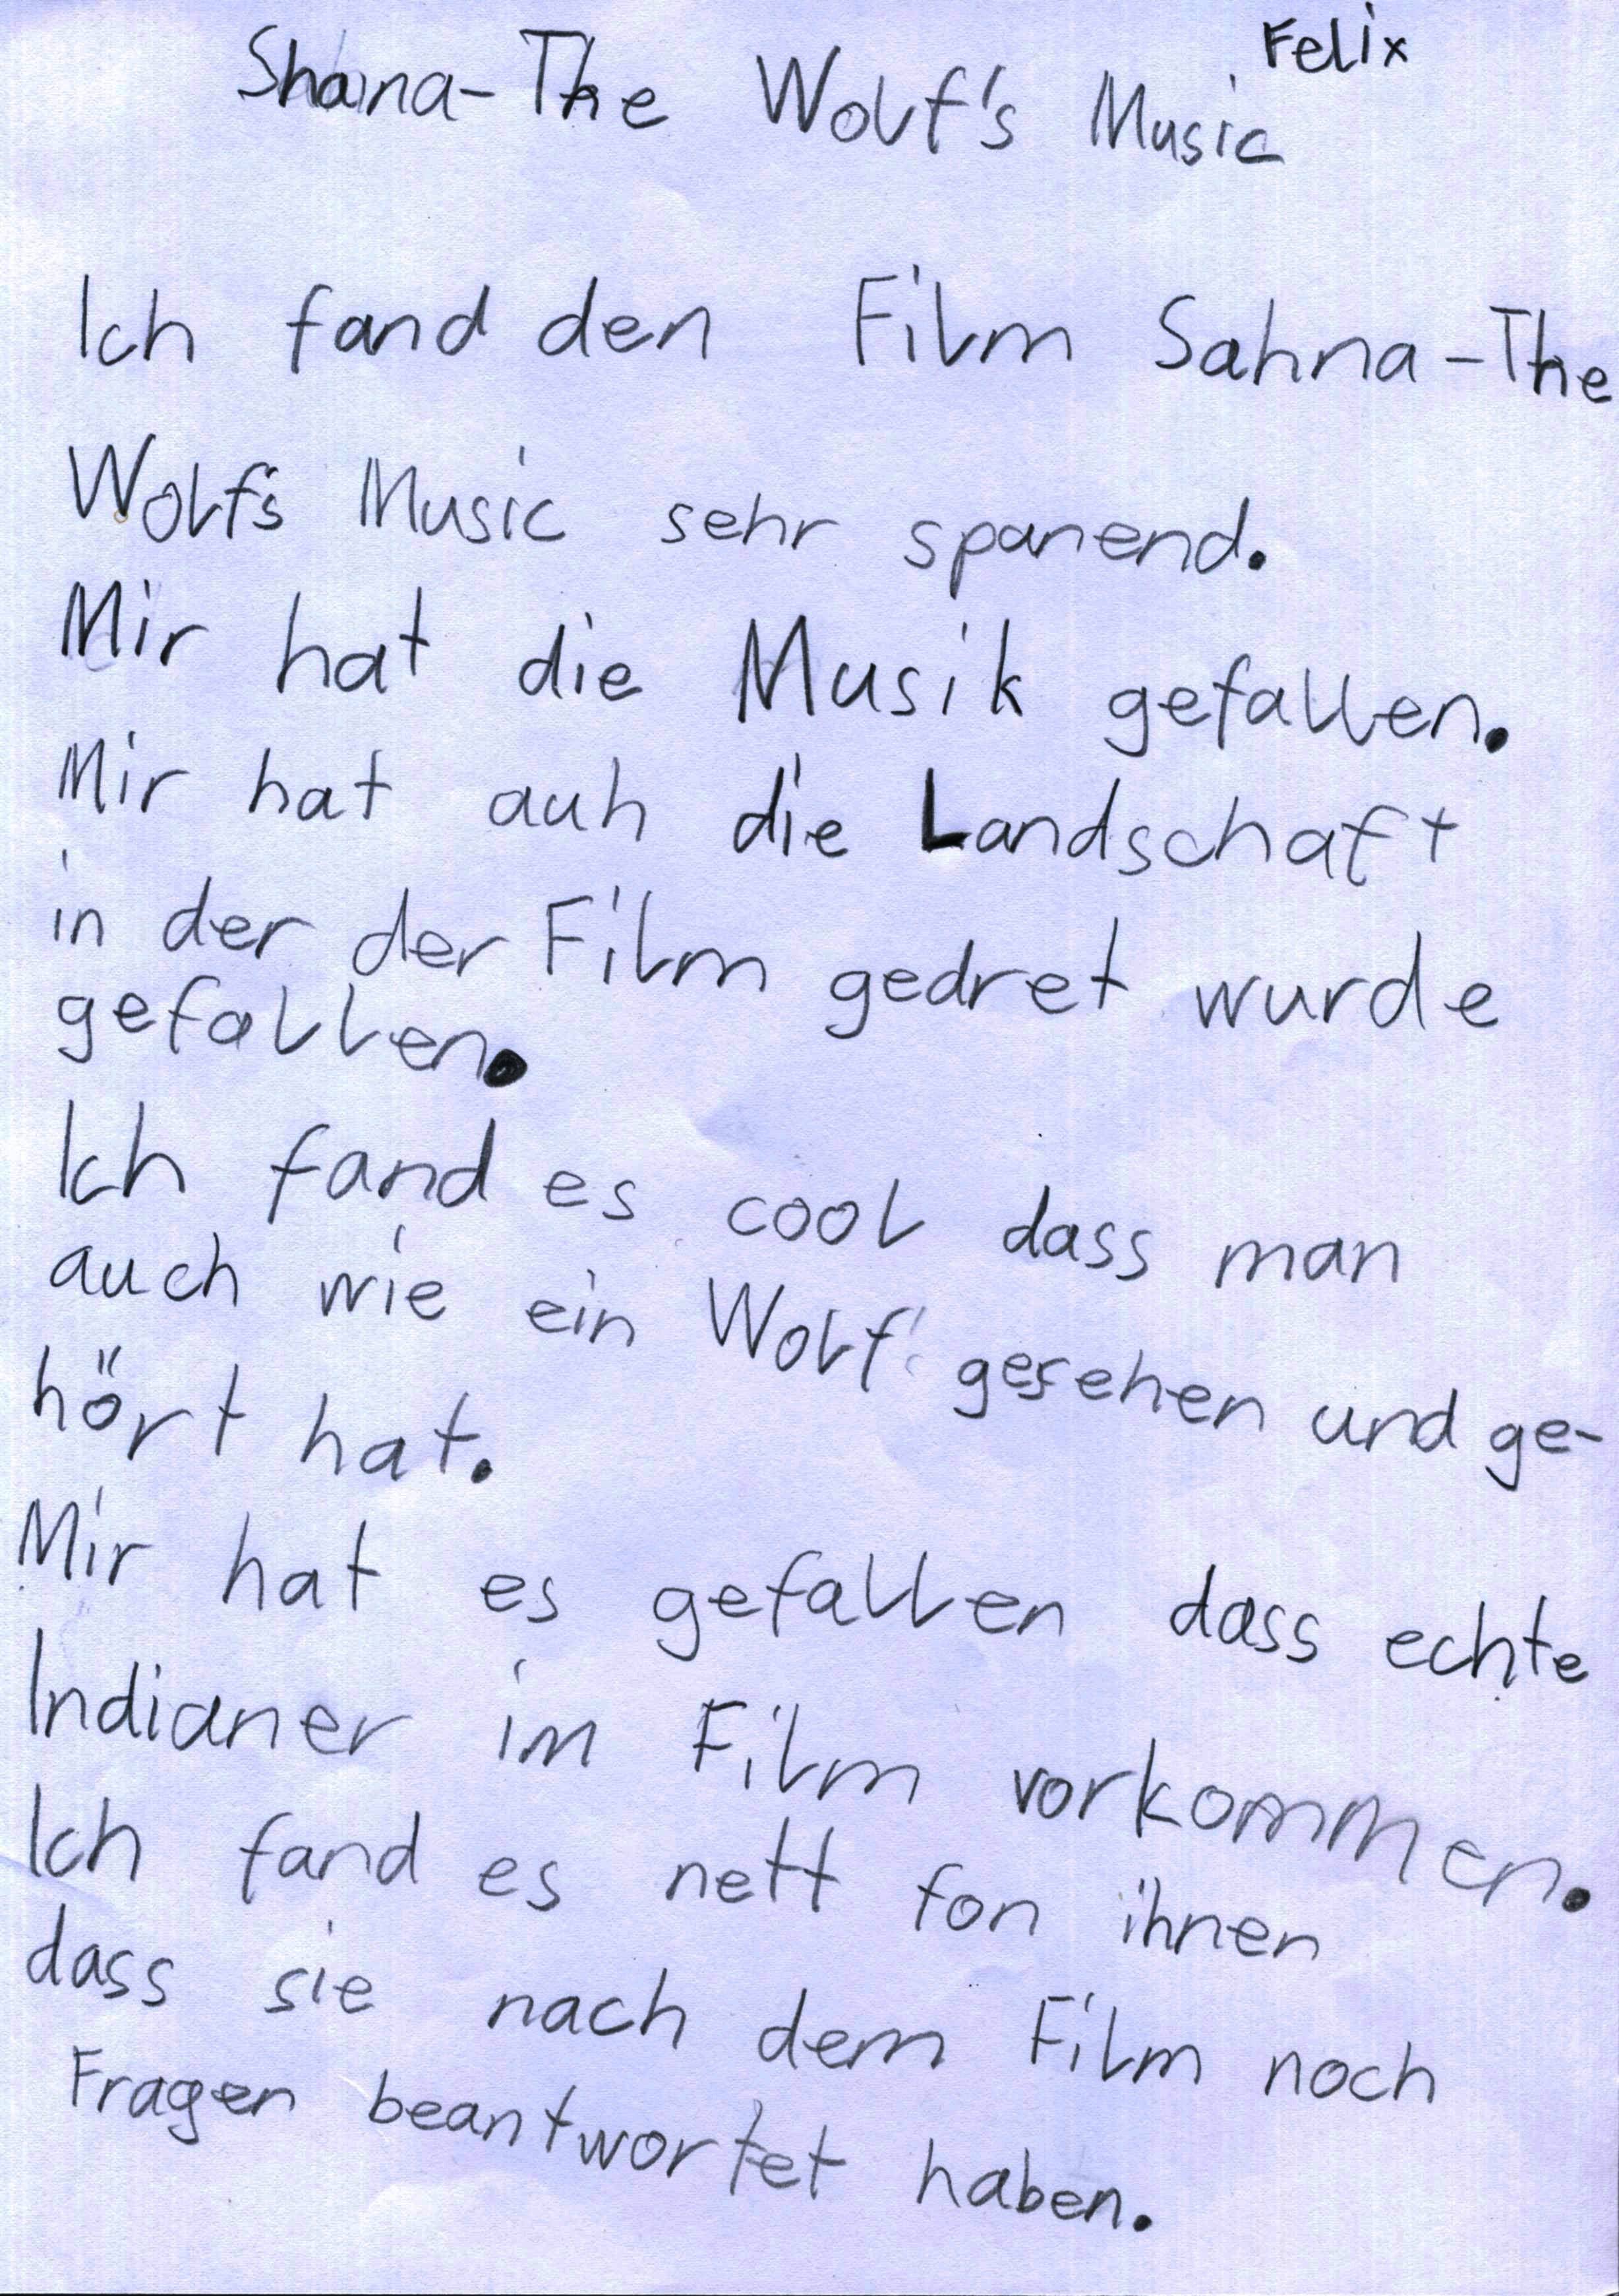 Felix
Shana-The Wolf's Music
Ich fand den Film Sahna-The
Wolf's Music sehr spanend.
Mir hat die Musik gefallen.
Mir hat auh die Landschaft
in der der Film gedret wurde
gefallen.
Ich fand es cool dass man
auch wie ein Wolf gesehen und ge-
hört hat.
Mir hat es gefallen dass echte
Indianer im Film vorkommen.
Ich fand es nett fon ihnen
dass sie nach dem Film noch
Fragen beantwortet haben.